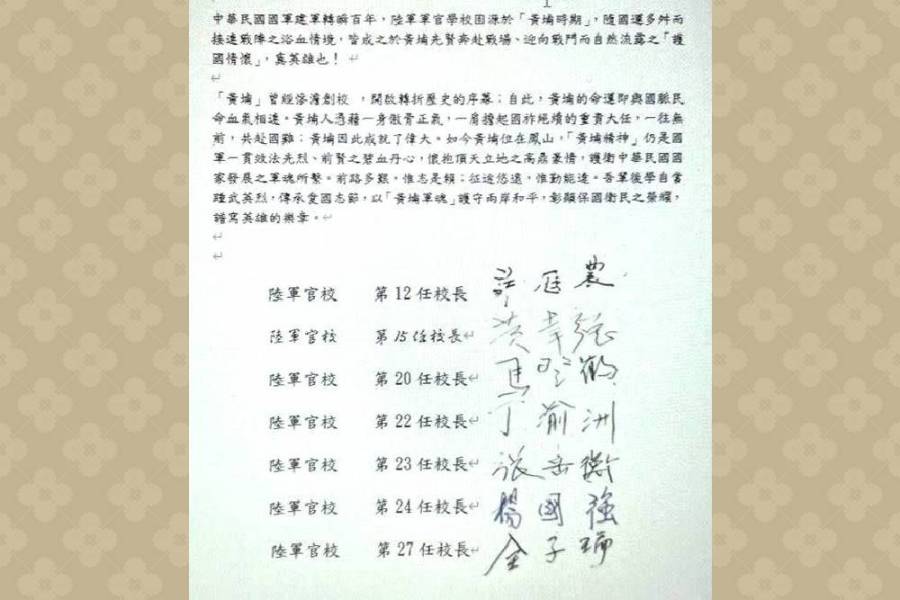 中華民國國軍建軍轉瞬百年，陸軍軍官學校因源於「黃埔時期」，隨國運多舛而
接連戰陣之浴血情境，皆成之於黃埔先賢奔赴戰場、迎向戰鬥而自然流露之「護
國情懷」，真英雄也！
「黃埔」曾經慘澹創校，開啟轉折歷史的序幕；自此，黃埔的命運即與國脈民
命血氣相連。黃埔人憑藉一身傲骨正氣，一肩擔起國祚絕續的重責大任，一往無
前，共赴國難；黃埔因此成就了偉大。如今黃埔位在鳳山，「黃埔精神」仍是國
軍一貫效法先烈、前賢之碧血丹心，懷抱頂天立地之高鼎豪情，護衛中華民國國
家發展之軍魂所繫。前路多艱。惟志是賴；征途悠遠，惟勤能達。吾輩後學自當
踵武英烈，傳承愛國志節，以「黃埔軍魂」護守兩岸和平，彰顯保國衛民之榮耀，
譜寫英雄的樂章。
陸軍官校 第 12 任校長 許歷農
陸軍官校 第15任校長 黃幸強
陸軍官校 第 20 任校長 馬登鶴
陸軍官校 第 22 任校長 丁渝洲
陸軍官校 第 23 任校長 張岳衡
陸軍官校 第 24 任校長 楊國強
陸軍官校 第 27 任校長 全子瑞